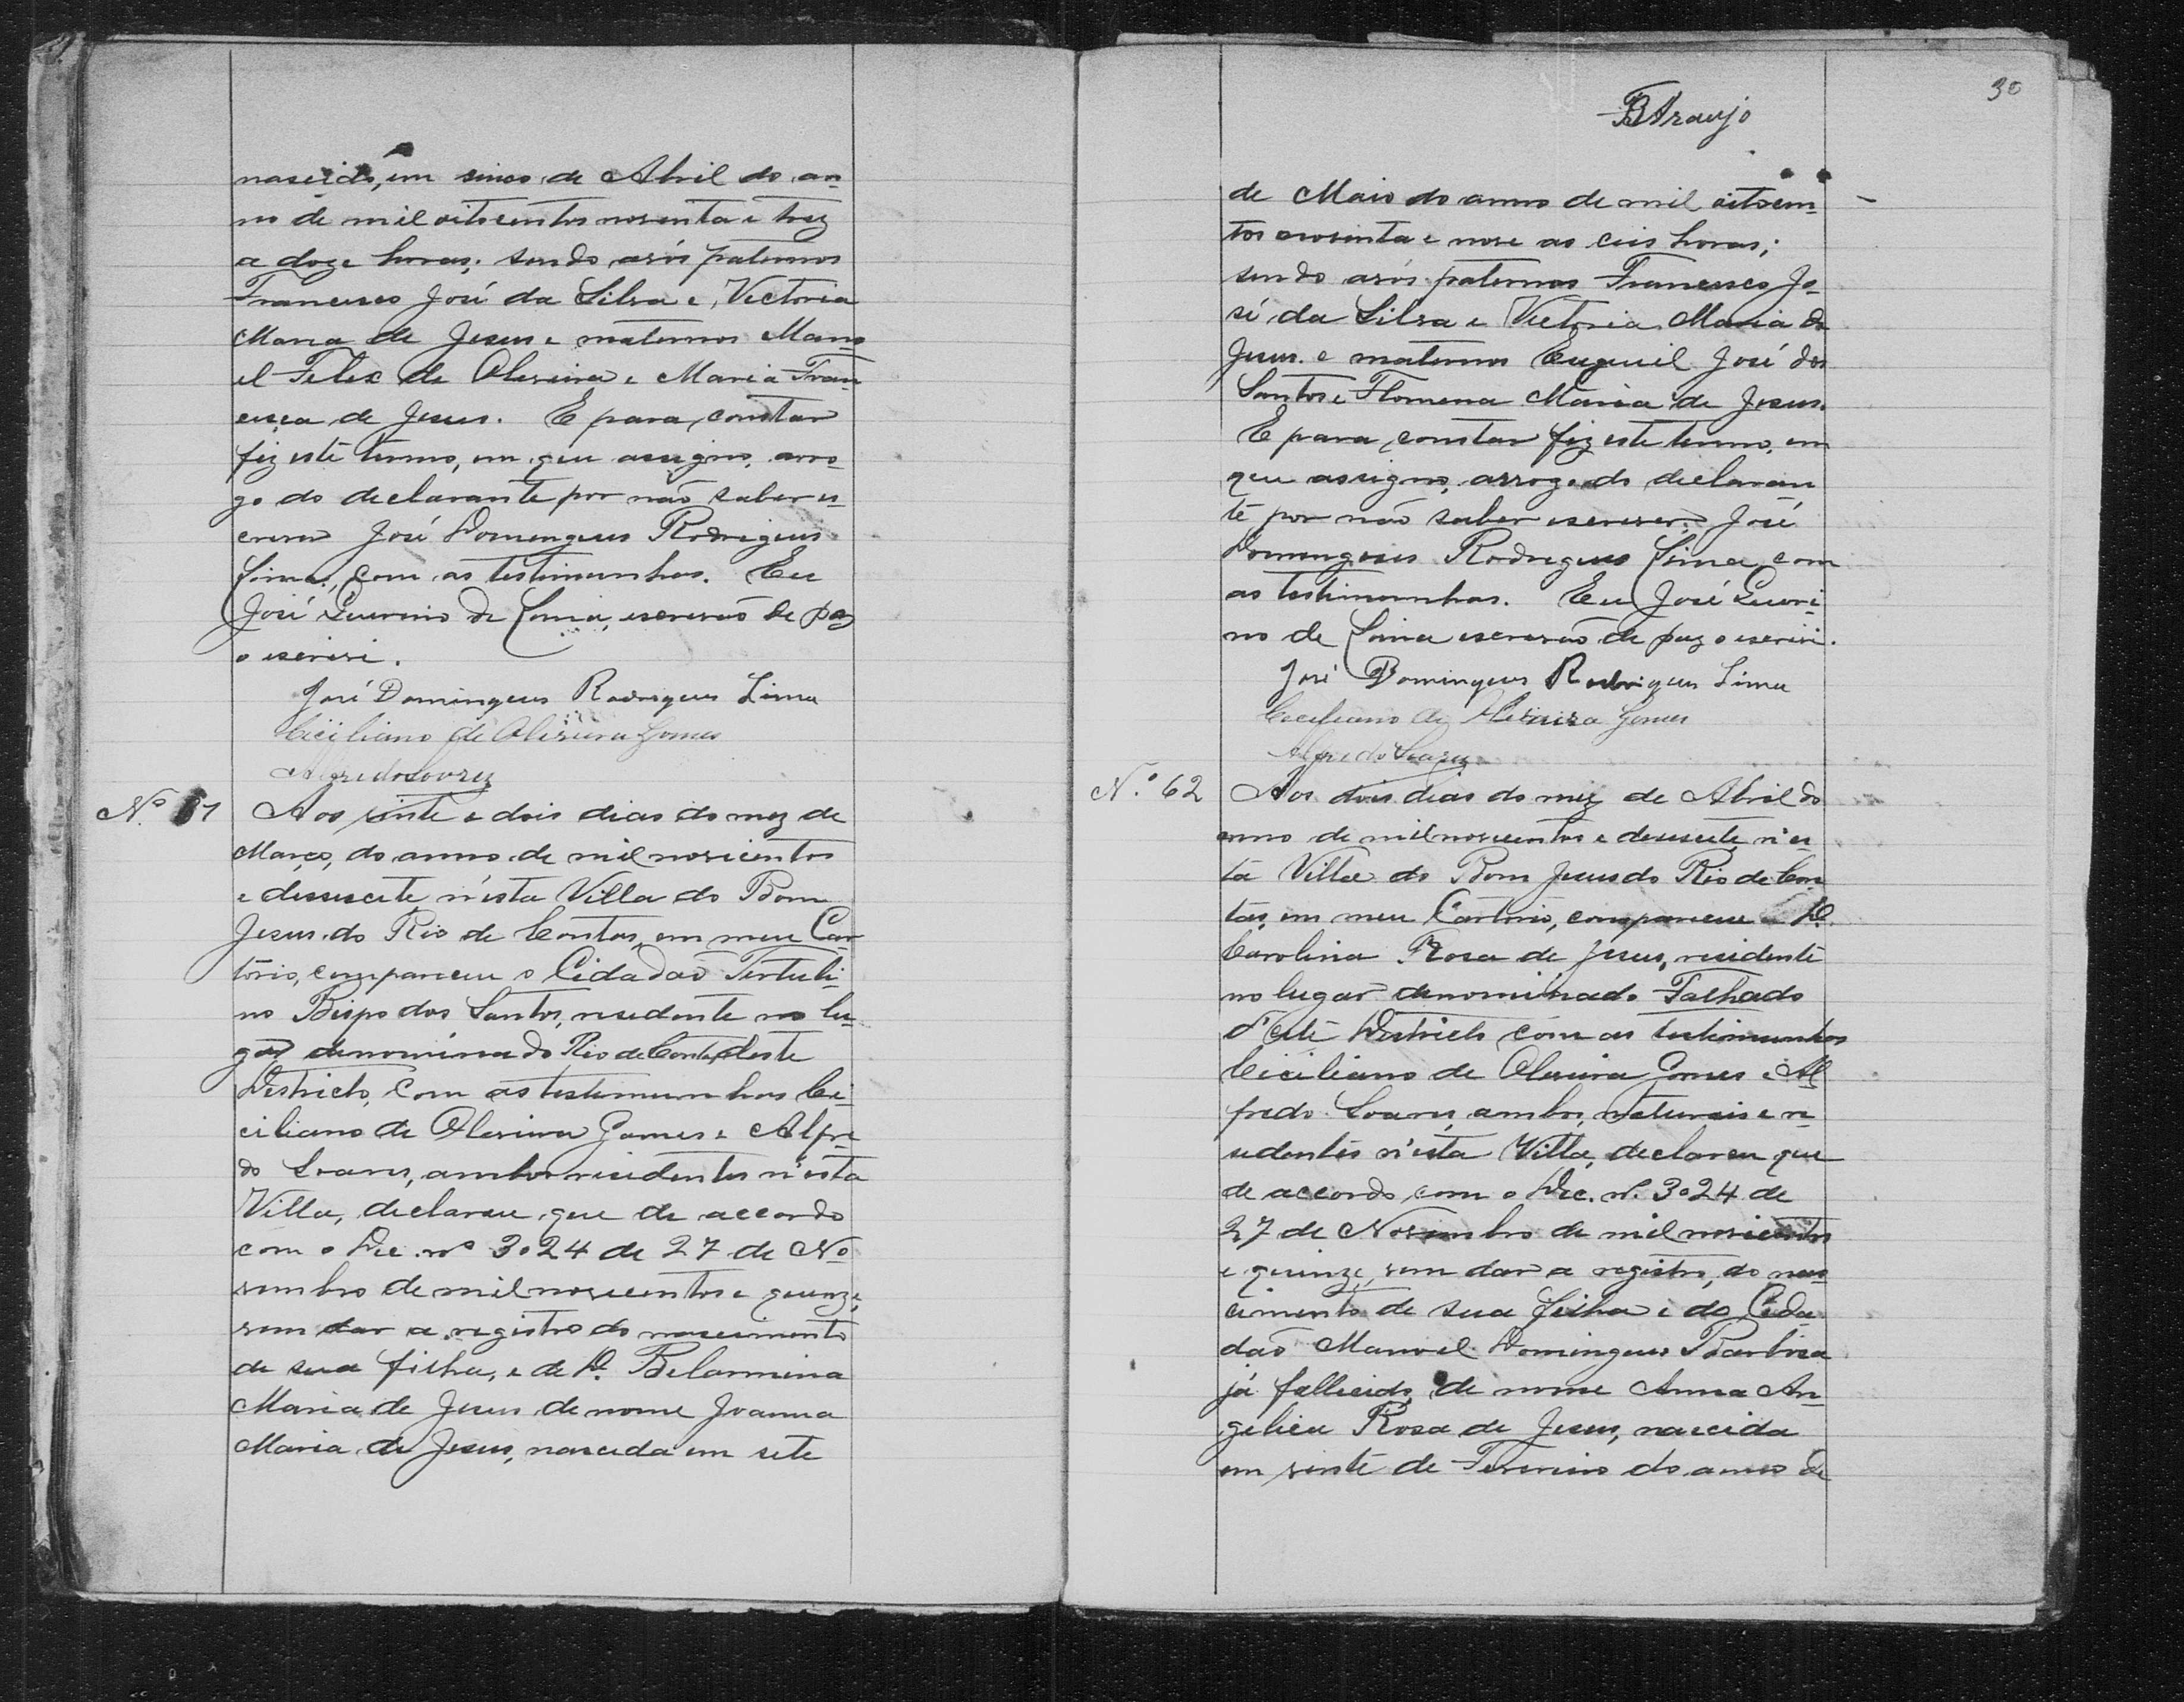 nascido, em sinco de Abril do an-
no de mil oitocentos noventa e trez
a doze horas; sendo avós paternos
Francisco José da Silva e Victoria
Maria de Jesus e maternos Mano
el Felex de Oliveira e Maria Fran
cisca de Jesus. E para constar
fiz este termo, em que assigno, arro-
go do declarante por não saber es-
crever José Domingues Rodrigues
Lima, com as testimunhas. Eu
José Guerino de Lima, escrevão de paz
o escrivi.
José Domingues Rodrigues Lima
Ciciliano de Oliveira Gomes
Alfredo Soarez
Nº 61
Aos vinte e dois dias do mez de
Março, do anno de mil novicentos
e desesecete n'esta Villa do Bom
Jesus do Rio de Contas, em meu Car
tório, compareceu o Cidadão Tertuli-
no Bispo dos Santos, residente no lu-
gar denominado Rio de Contas deste
Districto, com as testemunhas Ci-
ciliano de Oliveira Gomes e Alfre
do Soares, ambos residentes n'esta
Villa, declarou que de accordo
com o Dec. nº 3024 de 27 de No
vembro de mil novecentos e quinze,
vem dar a registro do nascimento
de sua filha, e de D. Belarmina
Maria de Jesus de nome Joanna
Maria de Jesus, nascida em sete
30
BAraujo
de Maio do anno de mil oitocen-
tos noventa e nove as ceis horas;
sendo avós paternos Francisco Jo-
sé da Silva e Victoria Maria de
Jesus e maternos José dos
Santos e Flomena Maria de Jesus.
E para constar fiz este termo, em
que assigno, arrogo do declaran
te por não saber escrever, José
Domingues Rodrigues Lima, com
as testimunhas. Eu José Gueri-
no de Lima escrevão de paz o escrivi.
José Domingues Rodrigues Lima
Ciciliano de Oliveira Gomes
Alfredo Soarez
N.º 62
Aos dois dias do mez de Abril do
anno de mil novicentos e desesecete n'es-
ta Villa do Bom Jesus do Rio de Con
tas, em meu Cartorio, compareceu a D.
Carolina Rosa de Jesus, residente
no lugar denominado Falhado
d'este Districto, com as testimunhas
Ciciliano de Oliveira Gomes e Al
fredo Soares, ambos, naturais e re
sedentes n'esta Villa, declarou que
de accordo com o Dec. nº. 3024 de
27 de Novembro de mil novicentos
e quinze, vem dar a registro, do nas
cimento de sua filha e do Cida-
dão Manoel Domingues Barbosa
já fallecido, de nome Anna An-
gelica Rosa de Jesus, nascida
em vinte de Fevereiro do anno de